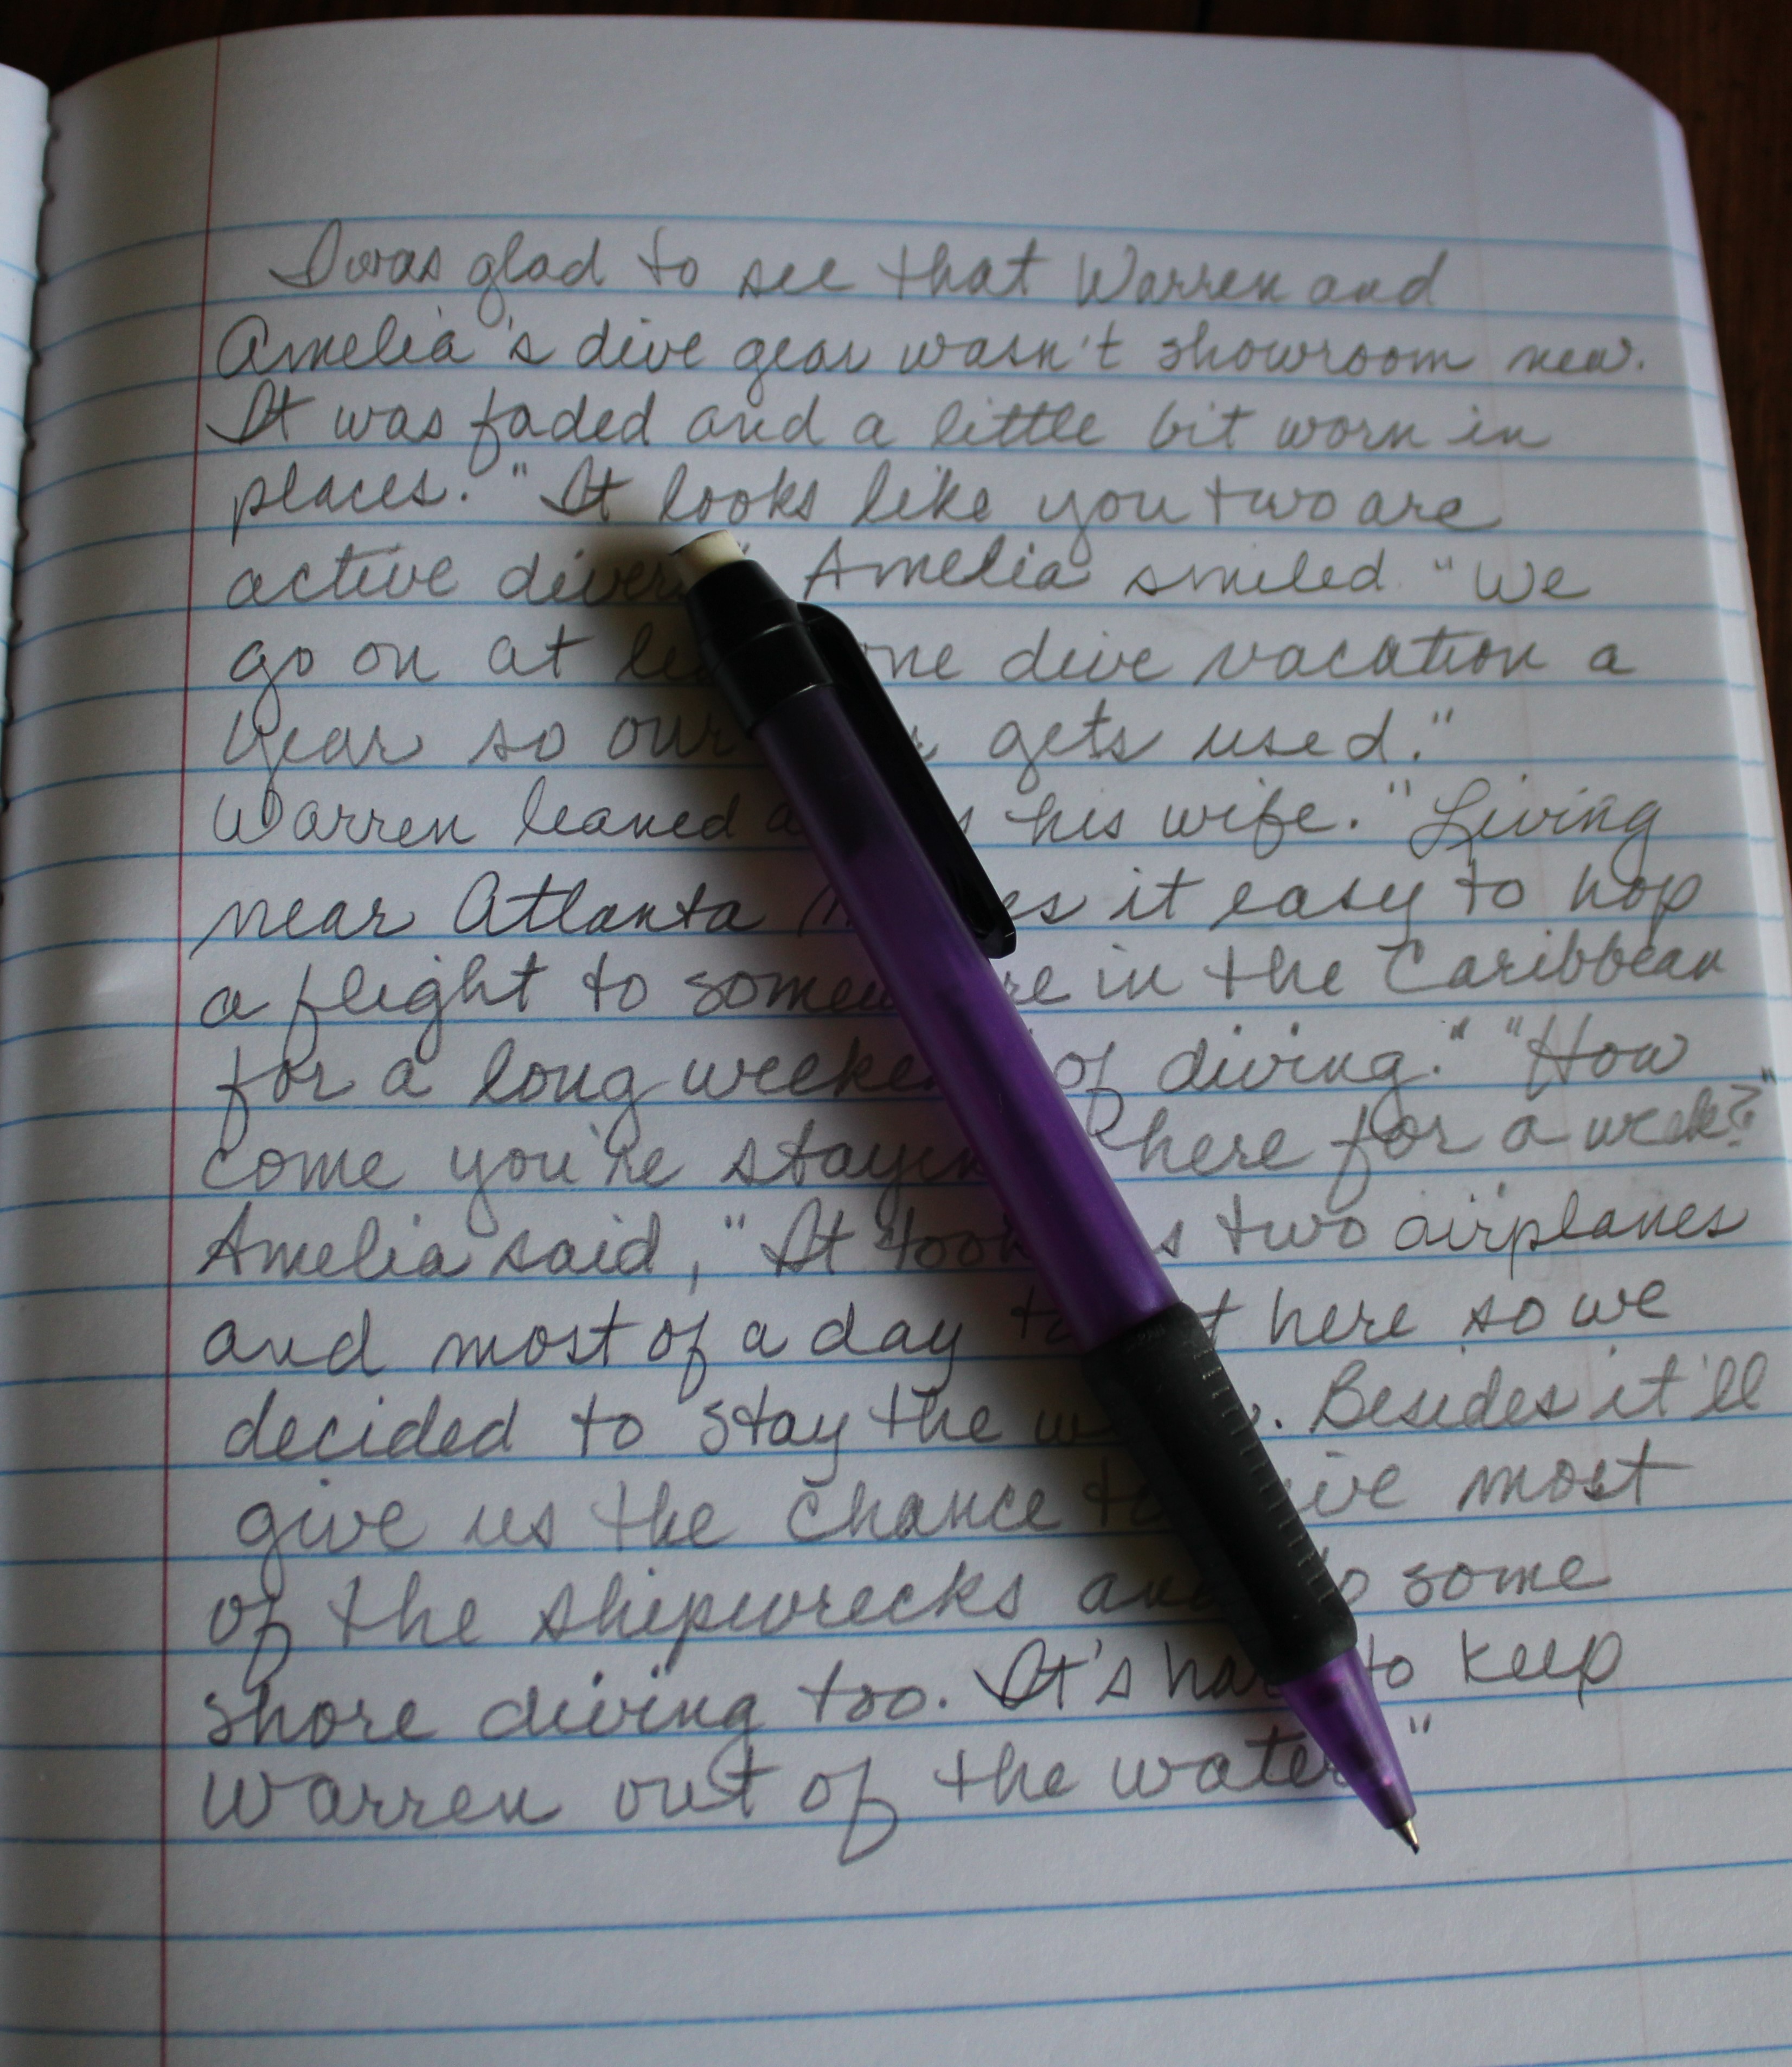 I was glad to see that Warren and
Amelia's dive gear wasn't showroom new.
It was faded and a little bit worn in
places. "It looks like you two are
active divers" Amelia smiled "We
go on at one dive vacation a
year so our gets used."
Warren leaned his wife. "Living
near Atlanta it easy to hop
a flight to in the Caribbean
for a long of diving." "How
come you're here for a week?"
Amelia said, "It took two airplanes
and most of a day here so we
decided to stay the Besides it'll
give us the chance most
of the shipwrecks some
shore diving too. It's to keep
Warren out of the water"